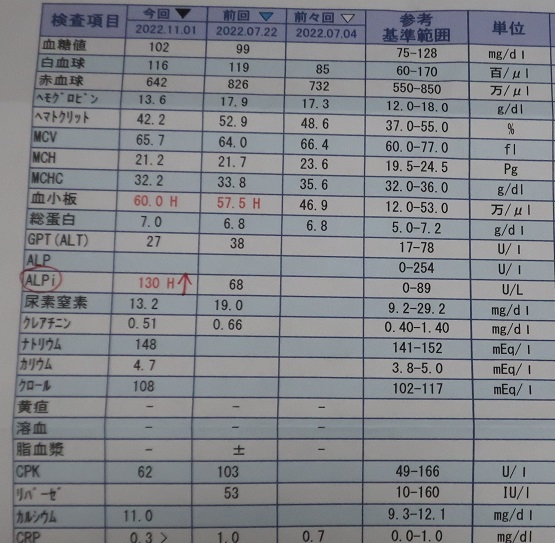 検査項目 今回▼ 前回▼ 前々回▽ 参考 基準範囲 単位
2022.11.01 2022.07.22 2022.07.04
血糖値 102 99 75-128 mg/dl
白血球 116 119 85 60-170 百/μl
赤血球 642 826 732 550-850 万/μl
ヘモグロビン 13.6 17.9 17.3 12.0-18.0 g/dl
ヘマトクリット 42.2 52.9 48.6 37.0-55.0 %
MCV 65.7 64.0 66.4 60.0-77.0 fl
MCH 21.2 21.7 23.6 19.5-24.5 Pg
MCHC 32.2 33.8 35.6 32.0-36.0 g/dl
血小板 60.0 H 57.5 H 46.9 12.0-53.0 万/μl
総蛋白 7.0 6.8 6.8 5.0-7.2 g/dl
GPT(ALT) 27 38 17-78 U/l
ALP 0-254 U/l
ALPi 130 H↑ 68 0-89 U/L
尿素窒素 13.2 19.0 9.2-29.2 mg/dl
クレアチニン 0.51 0.66 0.40-1.40 mg/dl
ナトリウム 148 141-152 mEq/l
カリウム 4.7 3.8-5.0 mEq/l
クロール 108 102-117 mEq/l
黄疸 - - -
溶血 - - -
脂血漿 - ± -
CPK 62 103 49-166 U/l
リパーゼ 53 10-160 IU/l
カルシウム 11.0 9.3-12.1 mg/dl
CRP 0.3 > 1.0 0.7 0.0-1.0 mg/dl